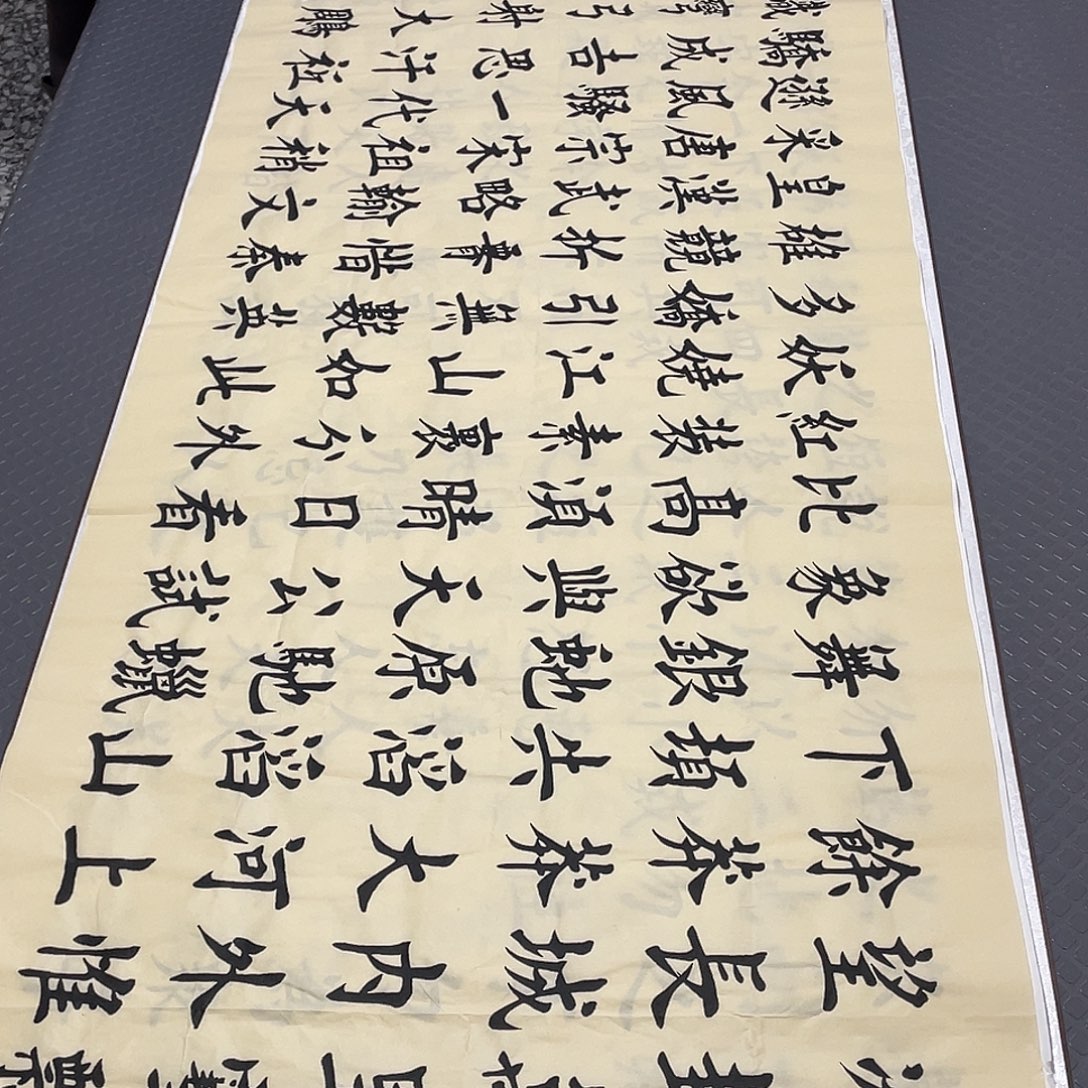 望長城内外惟
餘莽莽大河上
下頓失滔滔山
舞銀蛇原馳蠟
象欲與天公試
比高須晴日看
紅裝素裹分外
妖嬈江山如此
多嬌引無數英
雄競折腰惜秦
皇漢武略輸文
采唐宗宋祖稍
遜風騷一代天
驕成吉思汗祗
識彎弓射大鵰